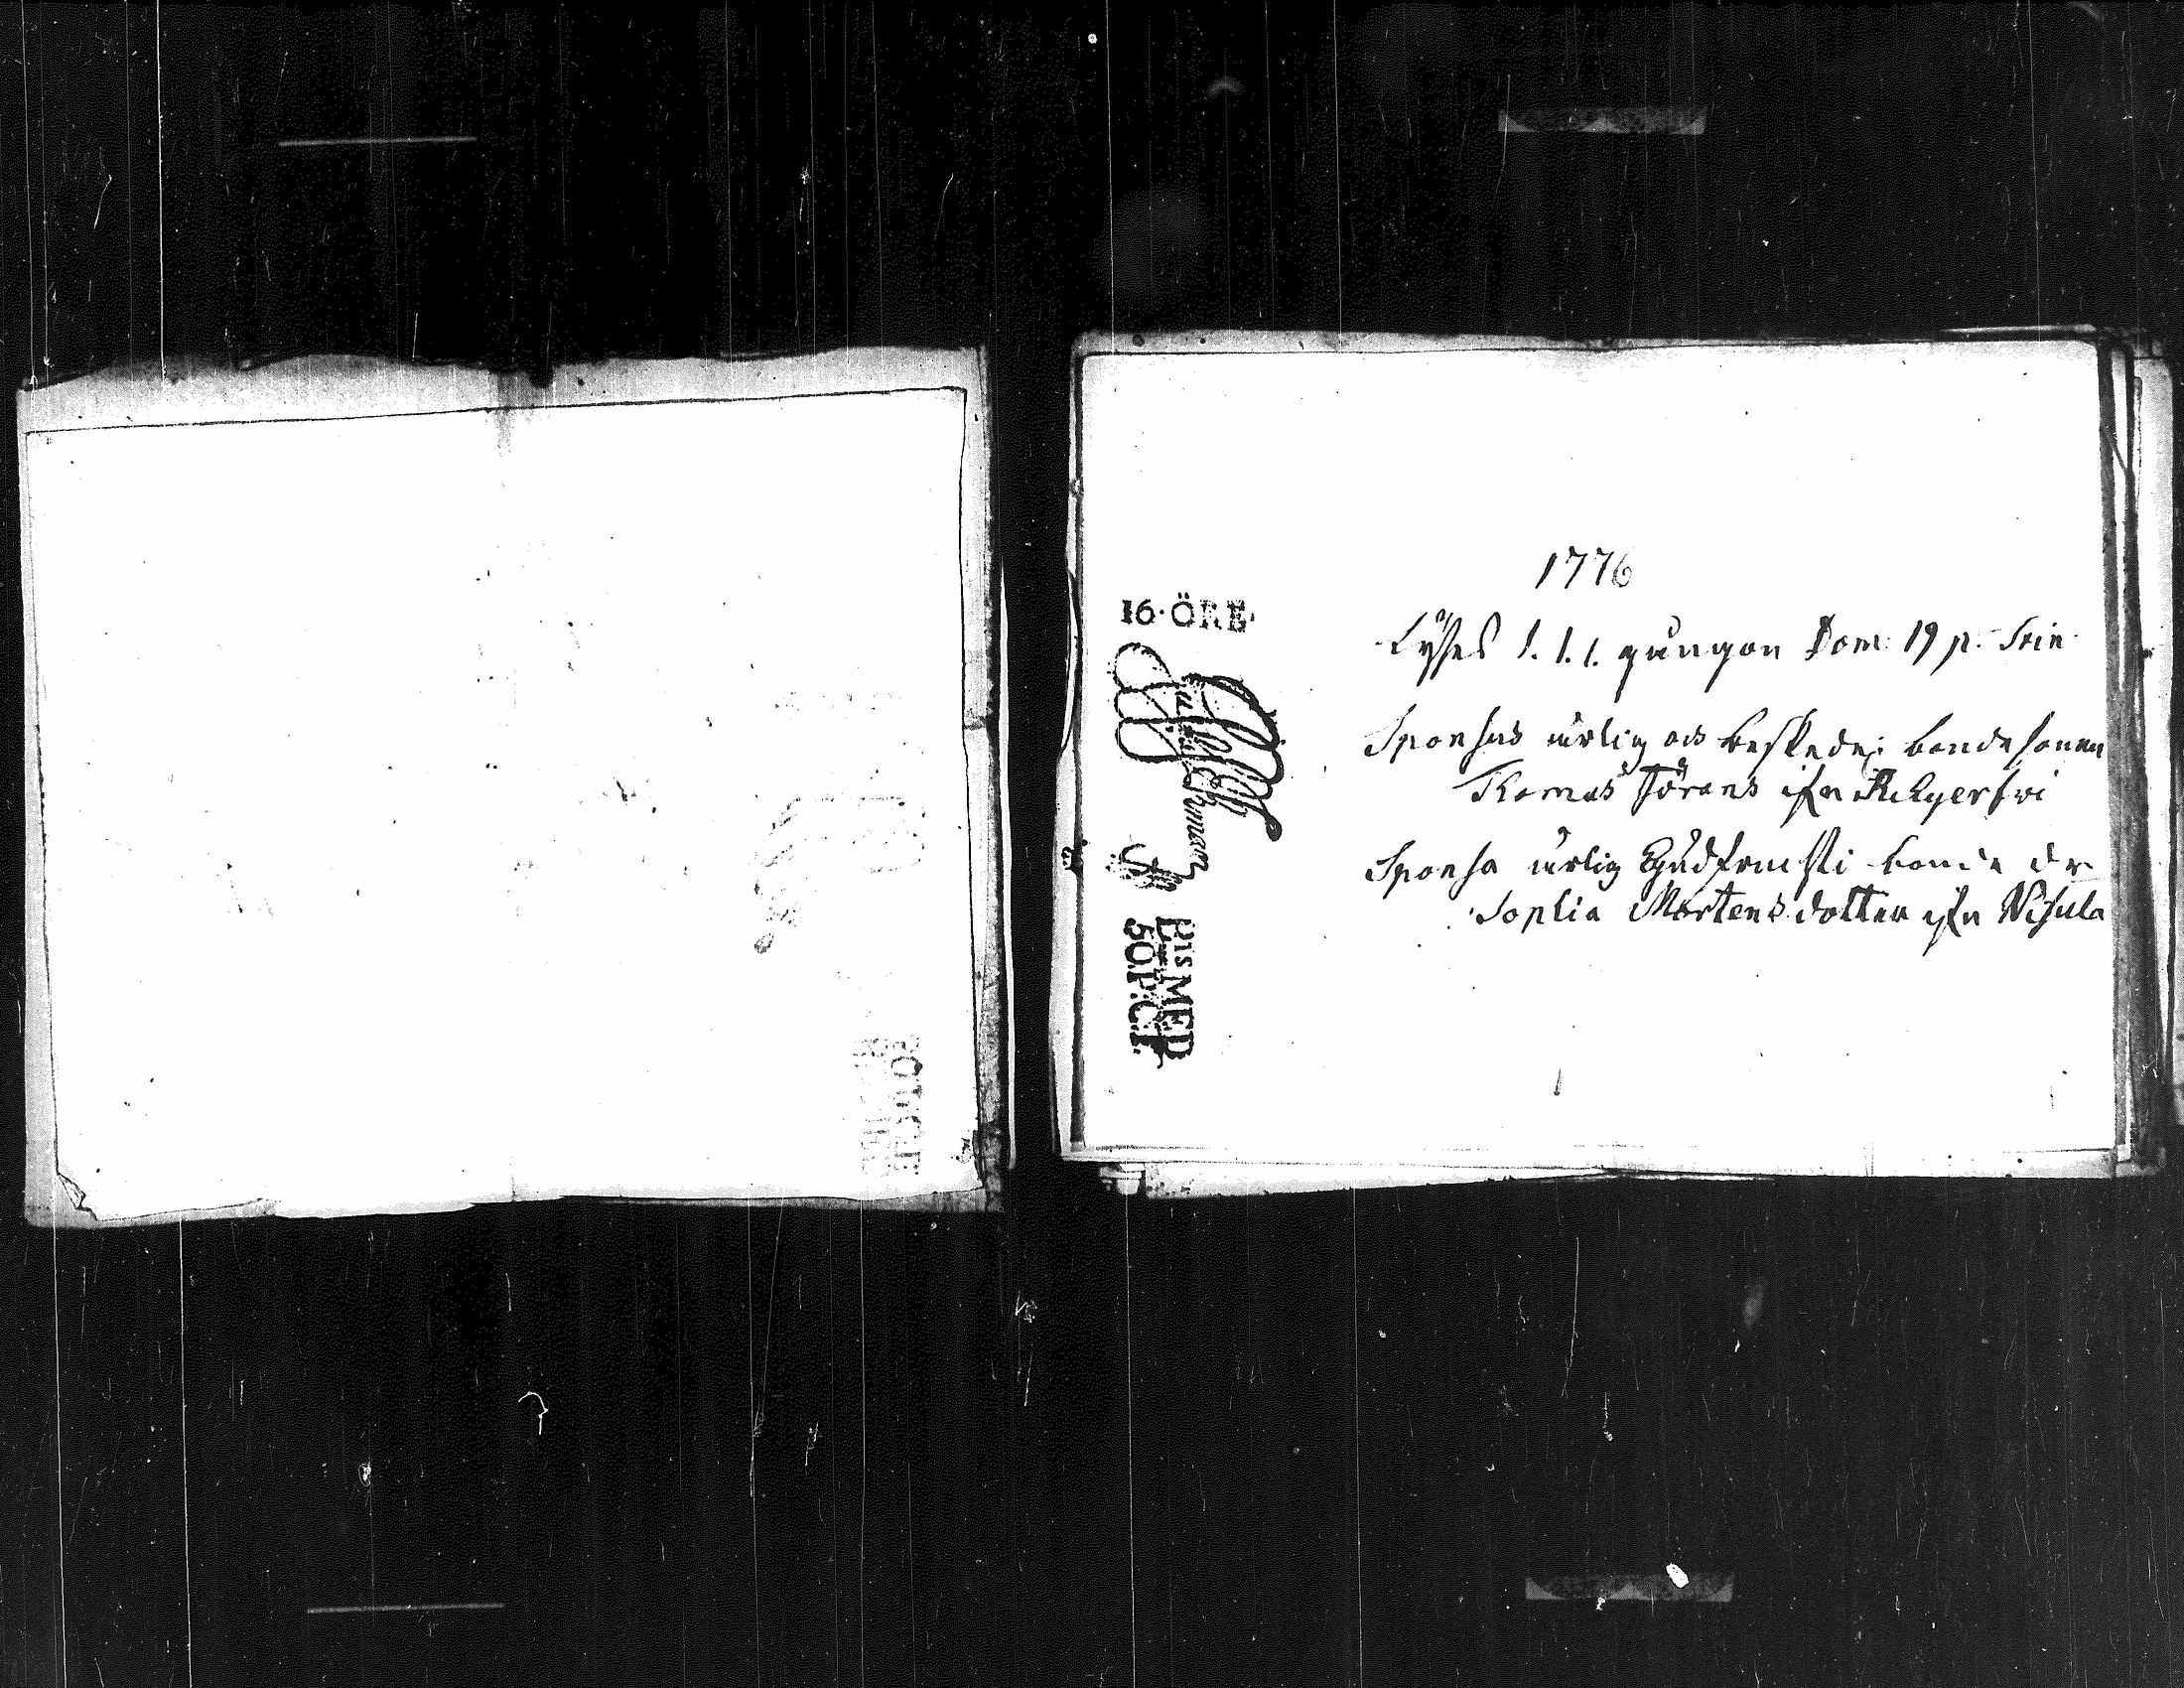 16·ÖRE·
1776
Lyses 1. 1. 1. gången Dom: 19 p. Trin
Sponsus ärlig och beskedei bondesonen
Thomas Jörans ifrn
Sponsa ärlig Gudfruchti bonde dr
Sophia Mårtens dotter ifrn Nisula
BisMED
50P:CT.